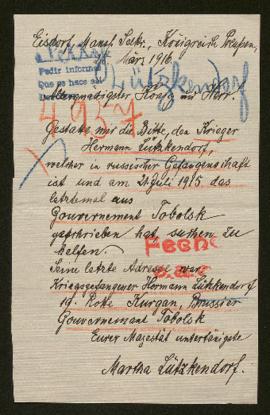 Eisdorf, Mansf. Seekr., Königreich Preußen,
März 1916.
Pedir informe
Que se hace
Lützkendorf
Allergnädigster König und Herr.
4937
Gestatte mir die Bitte, den Krieger
Hermann Lützkendorf,
welcher in russischer Gefangenschaft
ist und am 24 Juli 1915 das
letztemal aus
Gouvernement Tobolsk
geschrieben hat, suchen zu
helfen.
Seine letzte Adresse war
Kriegsgefangener Hermann Lützkendorf
19. Rotte Kurgan,
Gouvernement Tobolsk
Eurer Majestät untertänigste
Martha Lützkendorf.